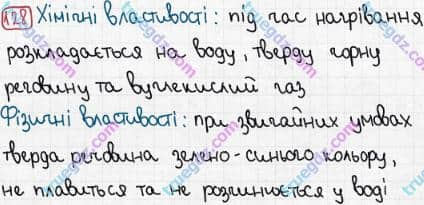 128 Хімічні властивості: під час нагрівання
розкладається на воду, тверду чорну
речовину та вуглекислий газ
Фізичні властивості: при звичайних умовах
тверда речовина зелено-синього кольору,
не плавиться та не розчиняється у воді
truegdz.com